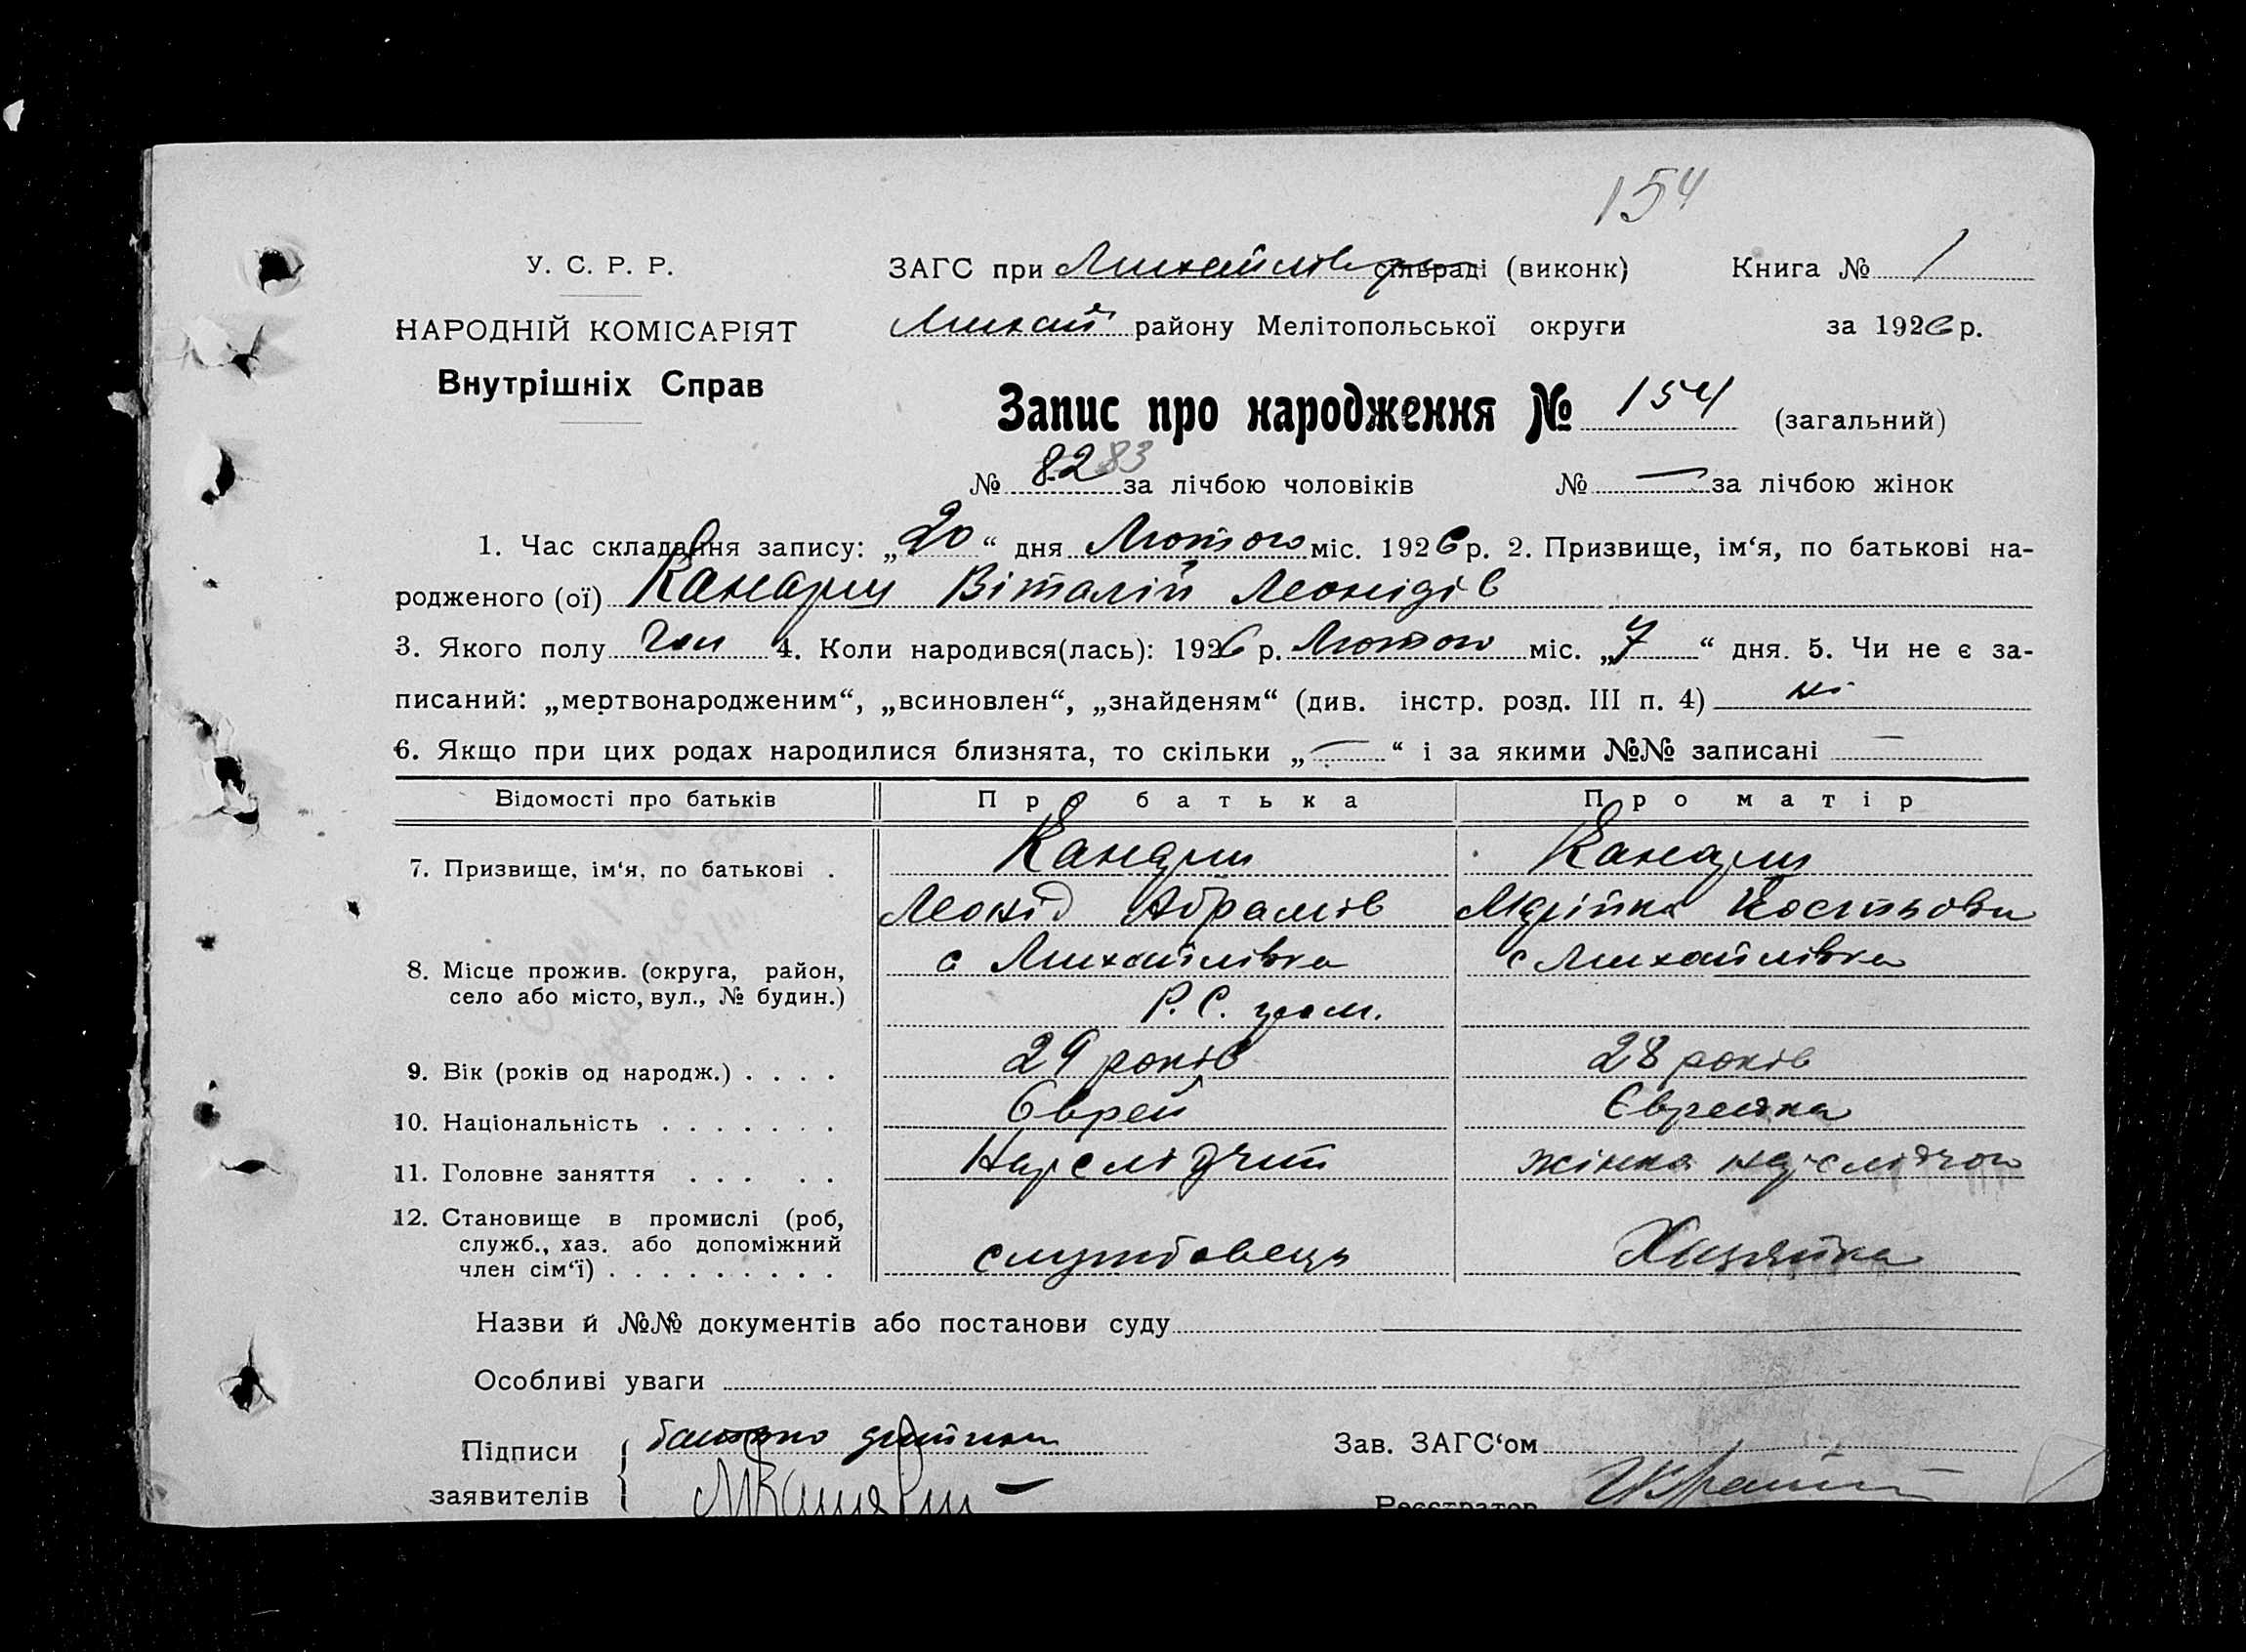 154
У. С. Р. Р.
ЗАГС при Михайлів сільраді (виконк) Книга № 1
НАРОДНІЙ КОМІСАРІЯТ
Михай району Мелітопольської округи за 1926 р.
Внутрішніх Справ
Запис про народження № 154 (загальний)
№ 82 83 за лічбою чоловіків № — за лічбою жінок
1. Час складання запису: „20“ дня Лютого міс. 1926 р. 2. Призвище, ім‘я, по батькові на-
родженого (ої) Канарш Віталій Леонідів
3. Якого полу чол 4. Коли народився(лась): 1926 р. Лютого міс. „7“ дня. 5. Чи не є за-
писаний: „мертвонародженим“, „всиновлен“, „знайденям“ (див. інстр. розд. III п. 4) ні
6. Якщо при цих родах народилися близнята, то скільки „—“ і за якими №№ записані —
Відомості про батьків Про батька Про матір
7. Призвище, ім‘я, по батькові . Канарш Канарш
Леонід Абрамів Марійка Костьова
8. Місце прожив. (округа, район, с Михайлівка с Михайлівка
село або місто, вул., № будин.) Р. С. гром.
9. Вік (років од народж.) . . . . 29 років 28 років
10. Національність . . . . . . . Єврей Єврейка
11. Головне заняття . . . . . Нарслідчий жінка нарслідчого
12. Становище в промислі (роб,
служб., хаз. або допоміжний
член сім‘ї) . . . . . . . . . службовець Хазяйка
Назви й №№ документів або постанови суду
Особливі уваги
Підписи батько дитини Зав. ЗАГС‘ом
заявителів Реєстратор